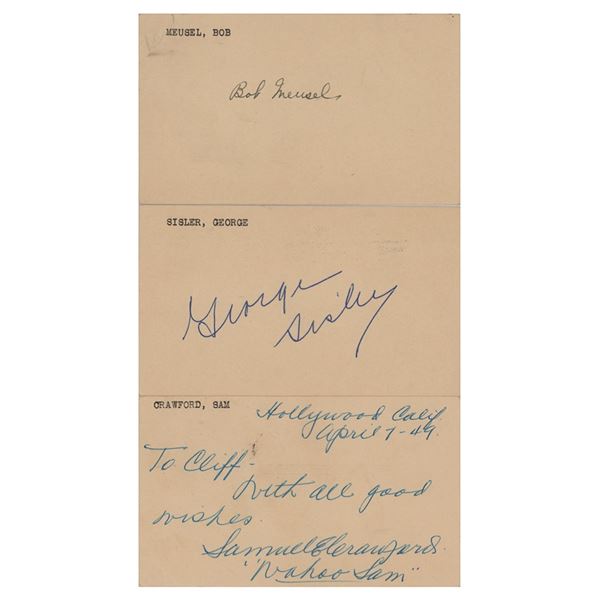 MEUSEL, BOB
Bob Meusel
SISLER, GEORGE
George
Sisler
CRAWFORD, SAM
Hollywood Calif
April 7-49.
To Cliff-
With all good
wishes.
Samuel E Crawford.
"Wahoo Sam"